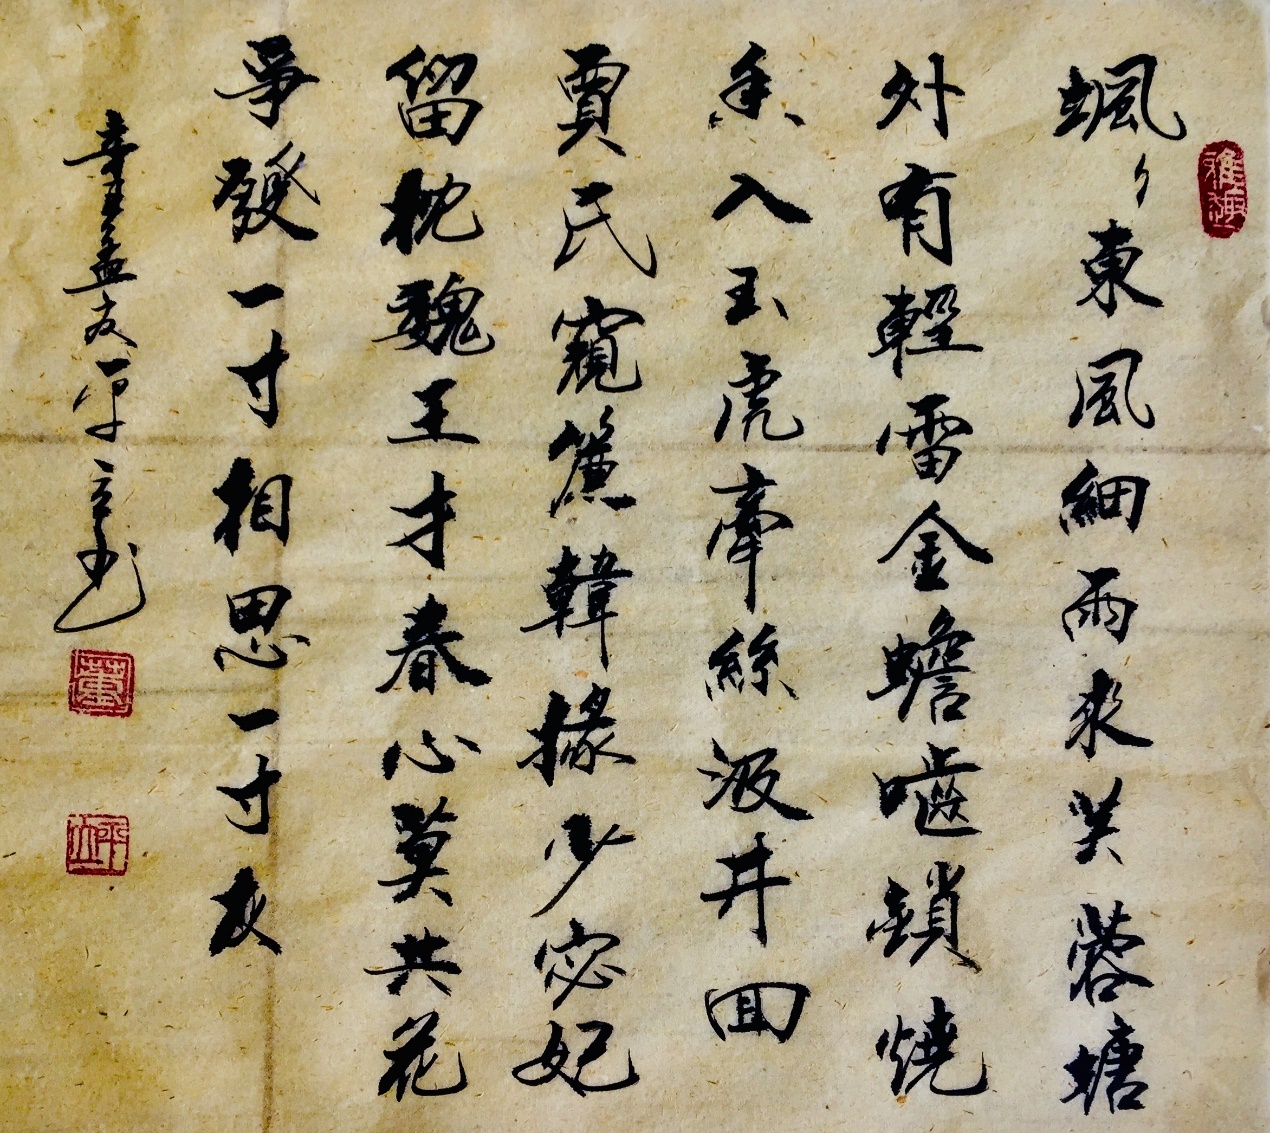 颯々東風細雨來芙蓉塘
外有輕雷金蟾嚙鎖燒
香入玉虎牽絲汲井回
賈氏窺簾韓掾少宓妃
留枕魏王才春心莫共花
爭發一寸相思一寸灰
辛孟友平
雅趣
董